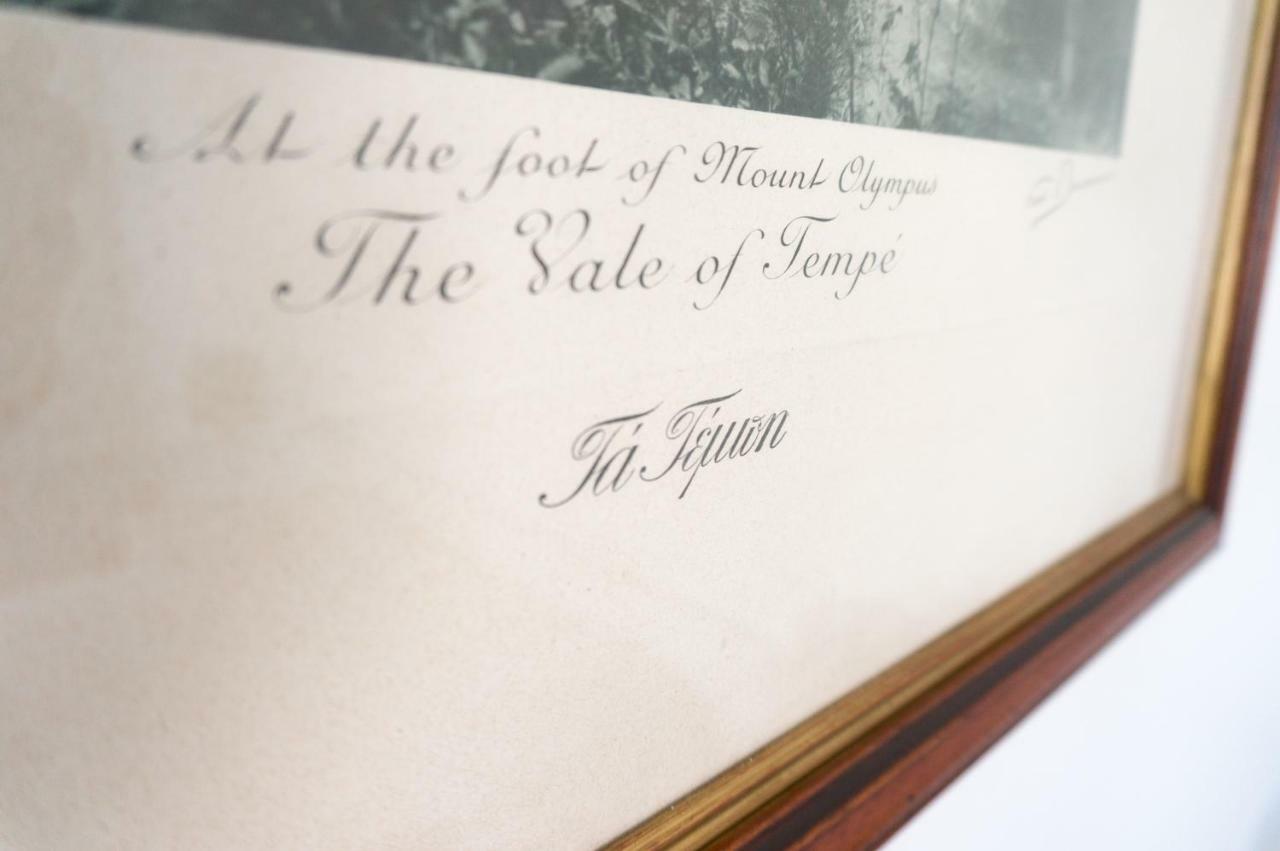 At the foot of Mount Olympus
The Vale of Tempé
Τά Τέμπη